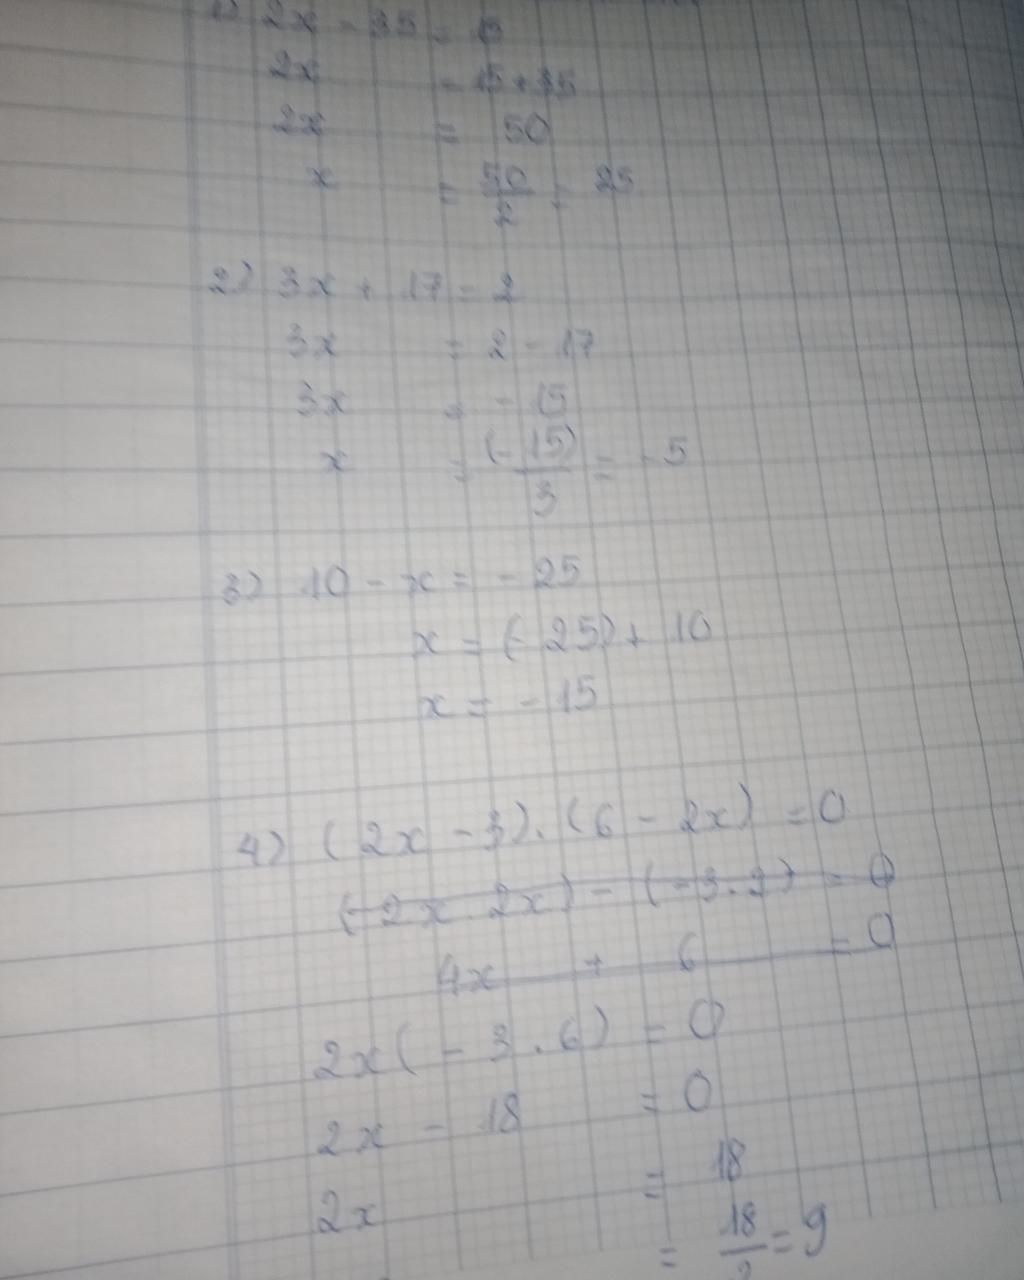 1) 2x - 35 = 15
2x = 15 + 35
2x = 50
x = 50/2 = 25
2) 3x + 17 = 2
3x = 2 - 17
3x = - 15
x = (-15)/3 = - 5
3) 10 - x = - 25
x = (- 25) + 10
x = - 15
4) (2x - 3) . (6 - 2x) = 0
(- 2x . 2x) - (-3 . 2) = 0
4x + 6 = 0
2x (- 3 . 6) = 0
2x - 18 = 0
2x = 18
= 18/2 = 9